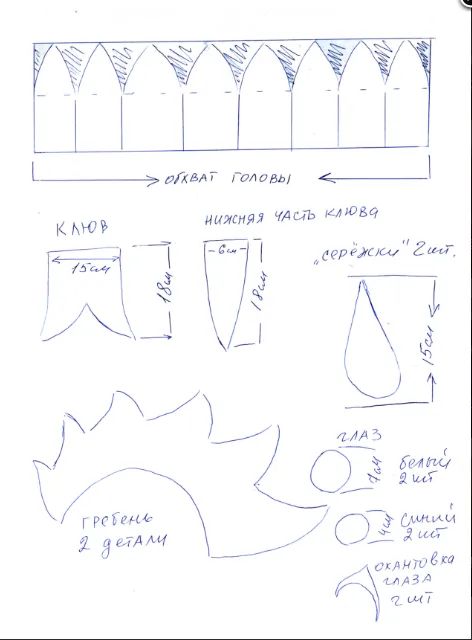 ОБХВАТ ГОЛОВЫ
КЛЮВ
15см
18см
НИЖНЯЯ ЧАСТЬ КЛЮВА
6см
18см
„СЕРЁЖКИ“ 2шт.
15см
ГРЕБЕНЬ
2 ДЕТАЛИ
ГЛАЗ
7см
БЕЛЫЙ
2 шт
4см
СИНИЙ
2 шт
ОКАНТОВКА
ГЛАЗА
2 шт